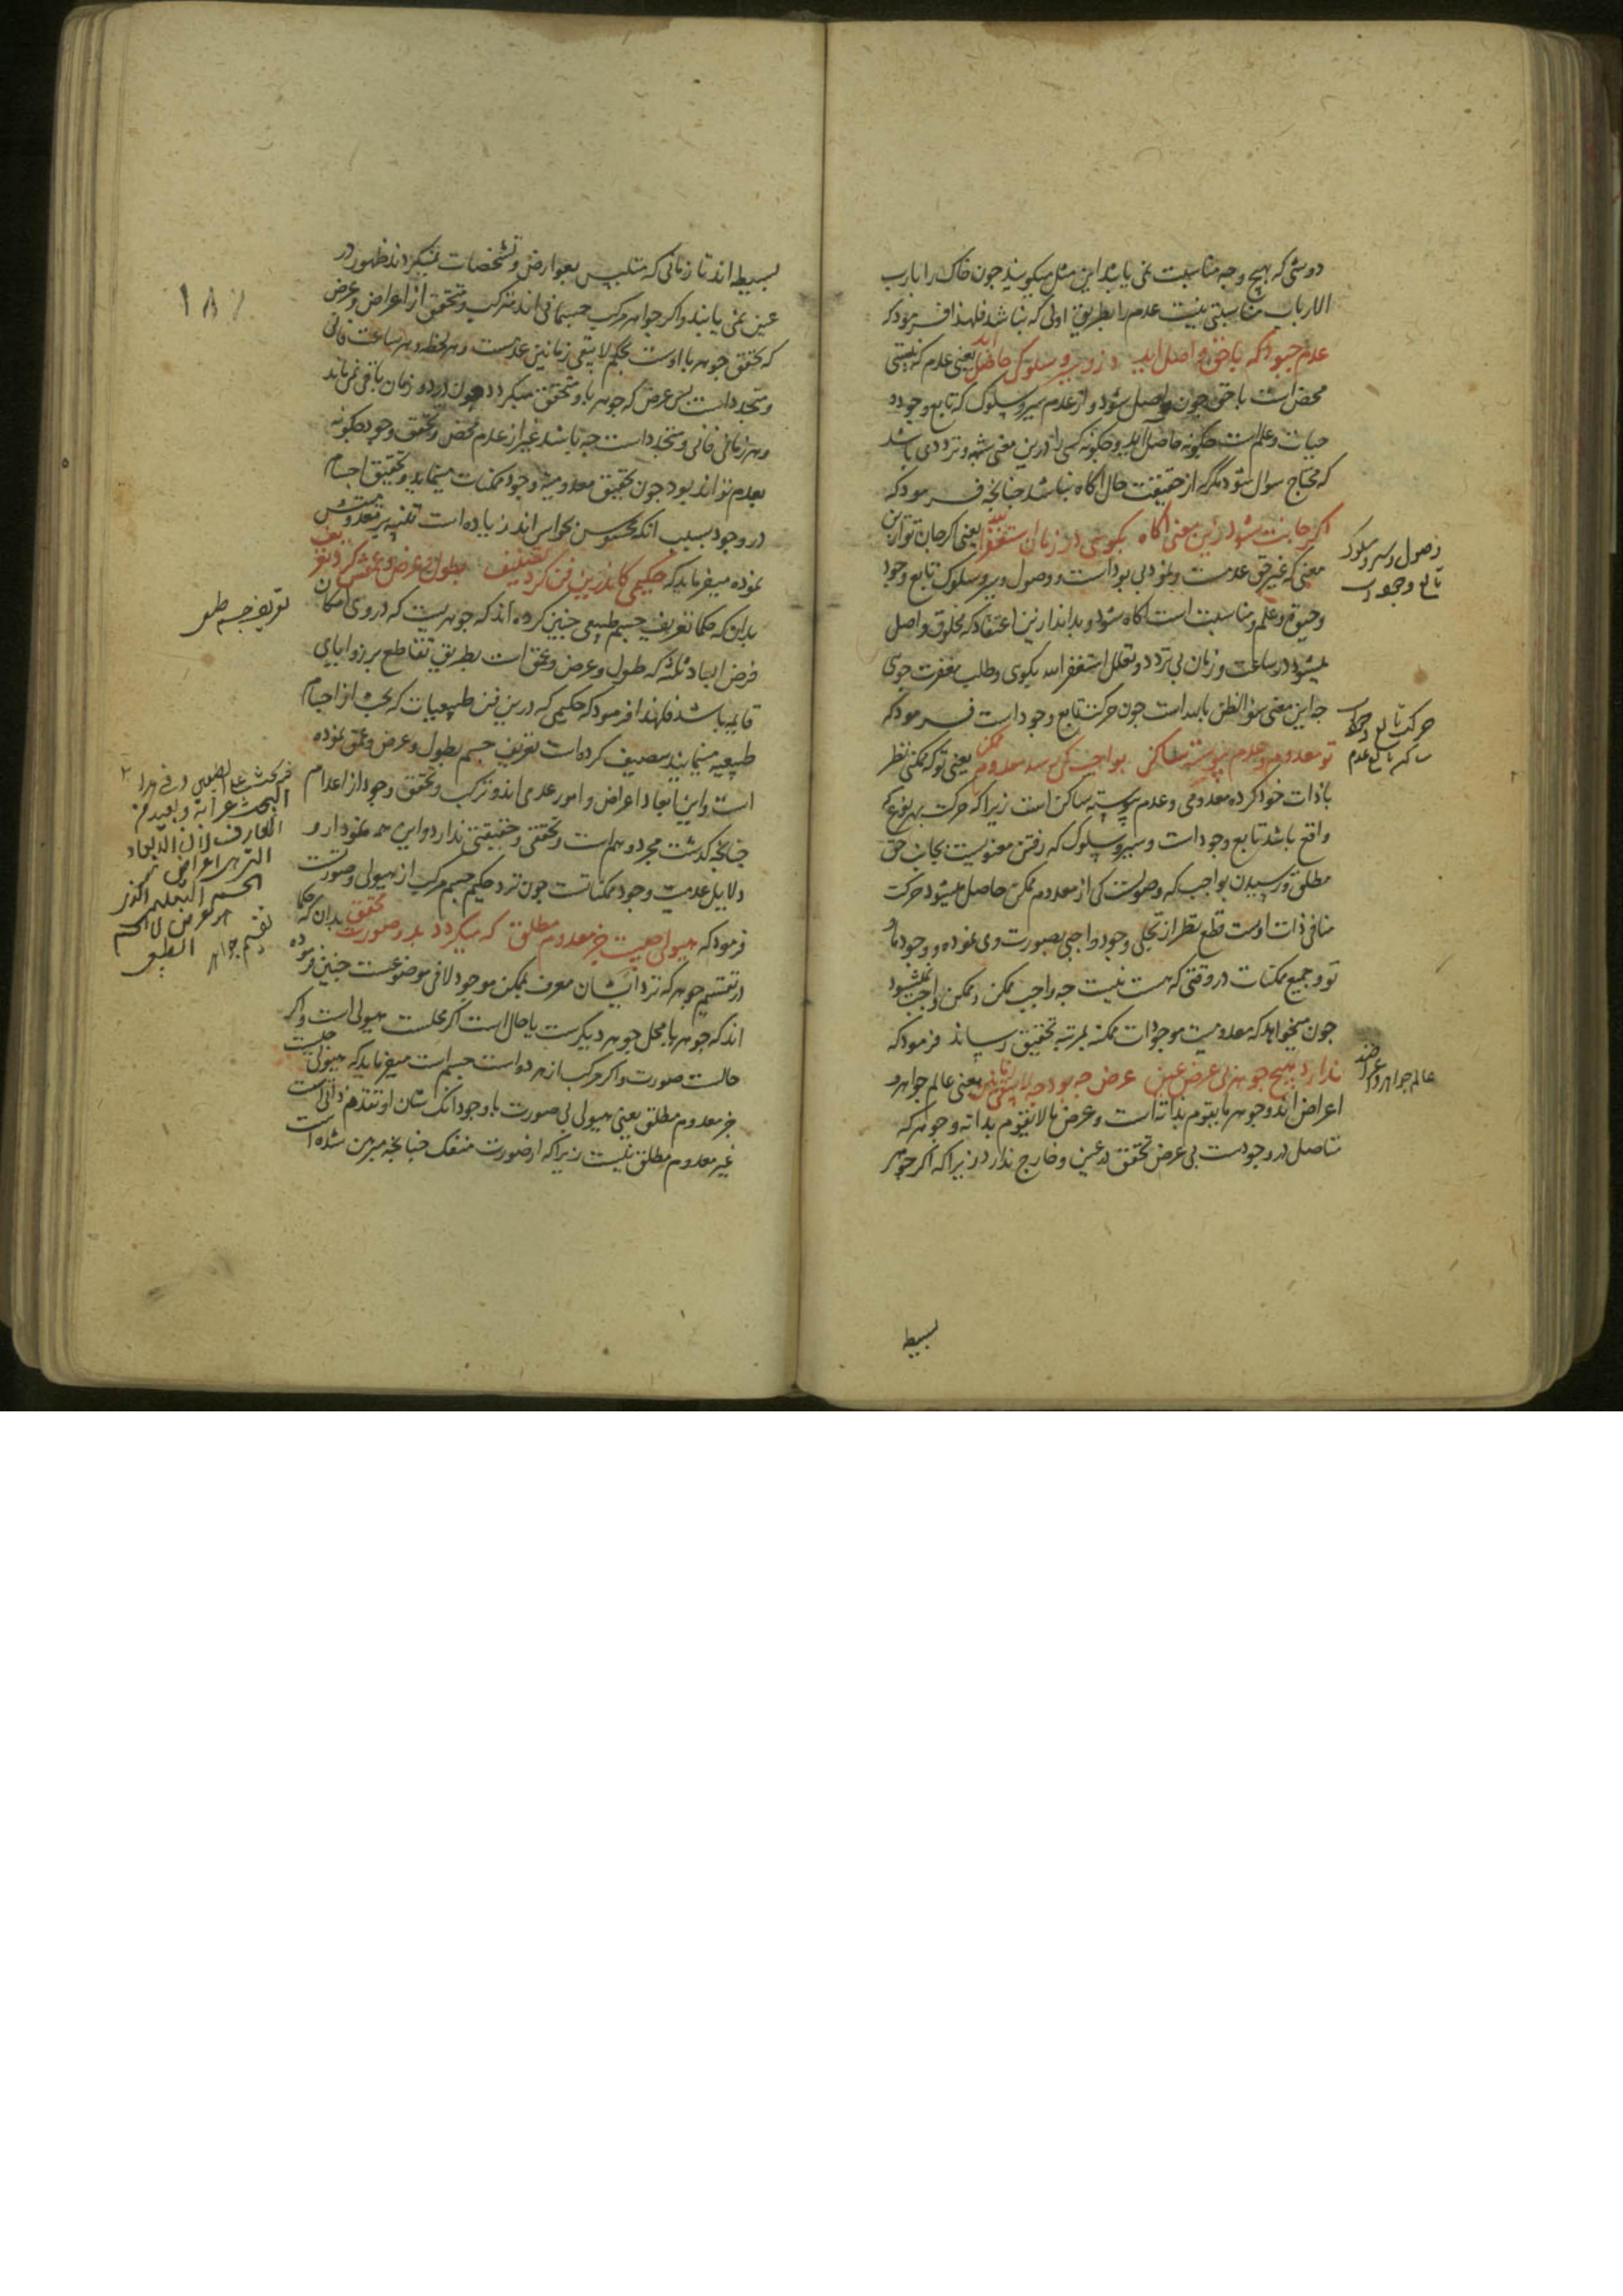 دو شی که بهیچ وجه مناسبت نمی یابند این مثل میکویند جون خاک را با رب
الارباب مناسبتی نیست عدم را بطریق اولی که نباشد فلهذا فرمودکه
عدم جبودکه باحق واصل اید وزو سیر و سلوک حاصل اید یعنی عدم که نیستی
محض است باحق جون واصل شود و از عدم سیر و سلوک که تابع وجود و
حیات و علم است جکونه حاصل اید وجکونه کسی را درین معنی شبهه و ترددی باشد
که محتاج سوال شود مکر که از حقیقت حال اکاه نباشد جنانجه فرمودکه
اکر جانت شود زین معنی اکاه بکویی در زمان استغفرالله یعنی اکر جان تو ازین
معنی که غیر حق عدمست و نمود بی بود است و وصول و سیر و سلوک تابع وجود
وحیوة و علم و مناسبت است اکاه شود و بداند ازین اعتقاد که مخلوق واصل
میشود در ساعت و زمان بی تردد و تعلل استغفر الله بکوی و طلب مغفرت جوی
جه این معنی سوء الظن بالله است جون حرکت تابع وجود است فرمودکه
تو معدوم و عدم پیوسته ساکن بواجب کی رسد معدوم ممکن یعنی تو که ممکنی نظر
باذات خود کرده معدومی و عدم پیوسته ساکن است زیرا که حرکت بهر نوع که
واقع باشد تابع وجود است و سیر و سلوک که رفتن معنویست بجانب حق
مطلق و رسیدن بواجب که وصولست کی از معدوم ممکن حاصل میشود حرکت
منافی ذات اوست قطع نظر از تجلی وجود واجبی بصورت وی نموده و وجود ما و
تو و جمیع ممکنات در وقتی که هست نیست جه واجب ممکن و ممکن واجب نمیشود
جون میخواهد که معدومیت موجودات ممکنه بمرتبه تحقیق رساند فرمودکه
ندارد هیچ جوهر بی عرض عین عرض جه بود جه لایبقی زمانین یعنی عالم جواهر و
اعراض اند و جوهر ما یتقوم بذاته است و عرض ما لا یتقوم بذاته و جوهر که
متاصل در وجودست بی عرض تحقق در عین و خارج ندارد زیرا که اکر جوهر
وصول و سیر و سلوک
تابع وجود است
حرکت تابع وجود
ساکن تابع عدم
عالم جواهر و اعراضند
بسیط
۱۸۷
بسیط اند تا زمانی که متلبس بعوارض و تشخصات نمیکردند ظهور در
عین نمی یابند و اکر جواهر مرکب جسمانی اند ترکب و تحقق از اعراض و عرض
که تحقق جوهر با اوست بحکم لا یبقی زمانین عدمست و هر لحظه و هر ساعت فانی
و متجدد است پس عرض که جوهر باو متحقق میکردد جون در دو زمان باقی نمی ماند
و هر زمانی فانی و متجدد است جه باشد غیر از عدم محض و تحقق وجود جکونه
بعدم تواند بود جون تحقیق معدومیة وجود ممکنات مینماید و تحقیق اجسام
در وجود بسبب انکه محسوس بحواس اند زیاده است تنبیه بر معدومیتش
نموده میفرماید که حکیمی کاندرین فن کرد تصنیف بطول و عرض و عمقش کرد تعریف
بدان که حکما تعریف جسم طبیعی جنین کرده اند که جوهریست که در وی امکان
فرض ابعاد ثلثه که طول و عرض و عمق است بطریق تقاطع بر زوایای
قایمه باشد فلهذا فرمود که حکیمی که درین فن طبیعیات که بحث از اجسام
طبیعیه مینمایند تصنیف کرده است تعریف جسم بطول و عرض و عمق نموده
است و این ابعاد اعراض و امور عدمی اند و ترکب و تحقق وجود از اعدام
جنانجه کذشت مجرد وهم است و تحققی و حقیقتی ندارد و این همه نمودار و
دلایل عدمیت وجود ممکناتست جون نزد حکیم جسم مرکب از هیولی و صورتست
فرمود که هیولی جیست جز معدوم مطلق که میکردد بدو صورت محقق بدان که حکما
در تقسیم جوهر که نزد ایشان معرف بممکن موجود لا فی موضوعست جنین فرموده
اند که جوهر یا محل جوهر دیکرست یا حال است اکر محلست هیولی است و اکر
حالست صورت و اکر مرکب از هر دو است جسم است میفرماید که هیولی جیست
جز معدوم مطلق یعنی هیولی بی صورت با وجود انک شان او تقدم ذاتی است
غیر معدوم مطلق نیست زیرا که از صورت منفک جنانجه مبرهن شده است
تعریف جسم طبیعی
البحث
الجسم التعلیمی
الطبیعی
تقسیم جواهر